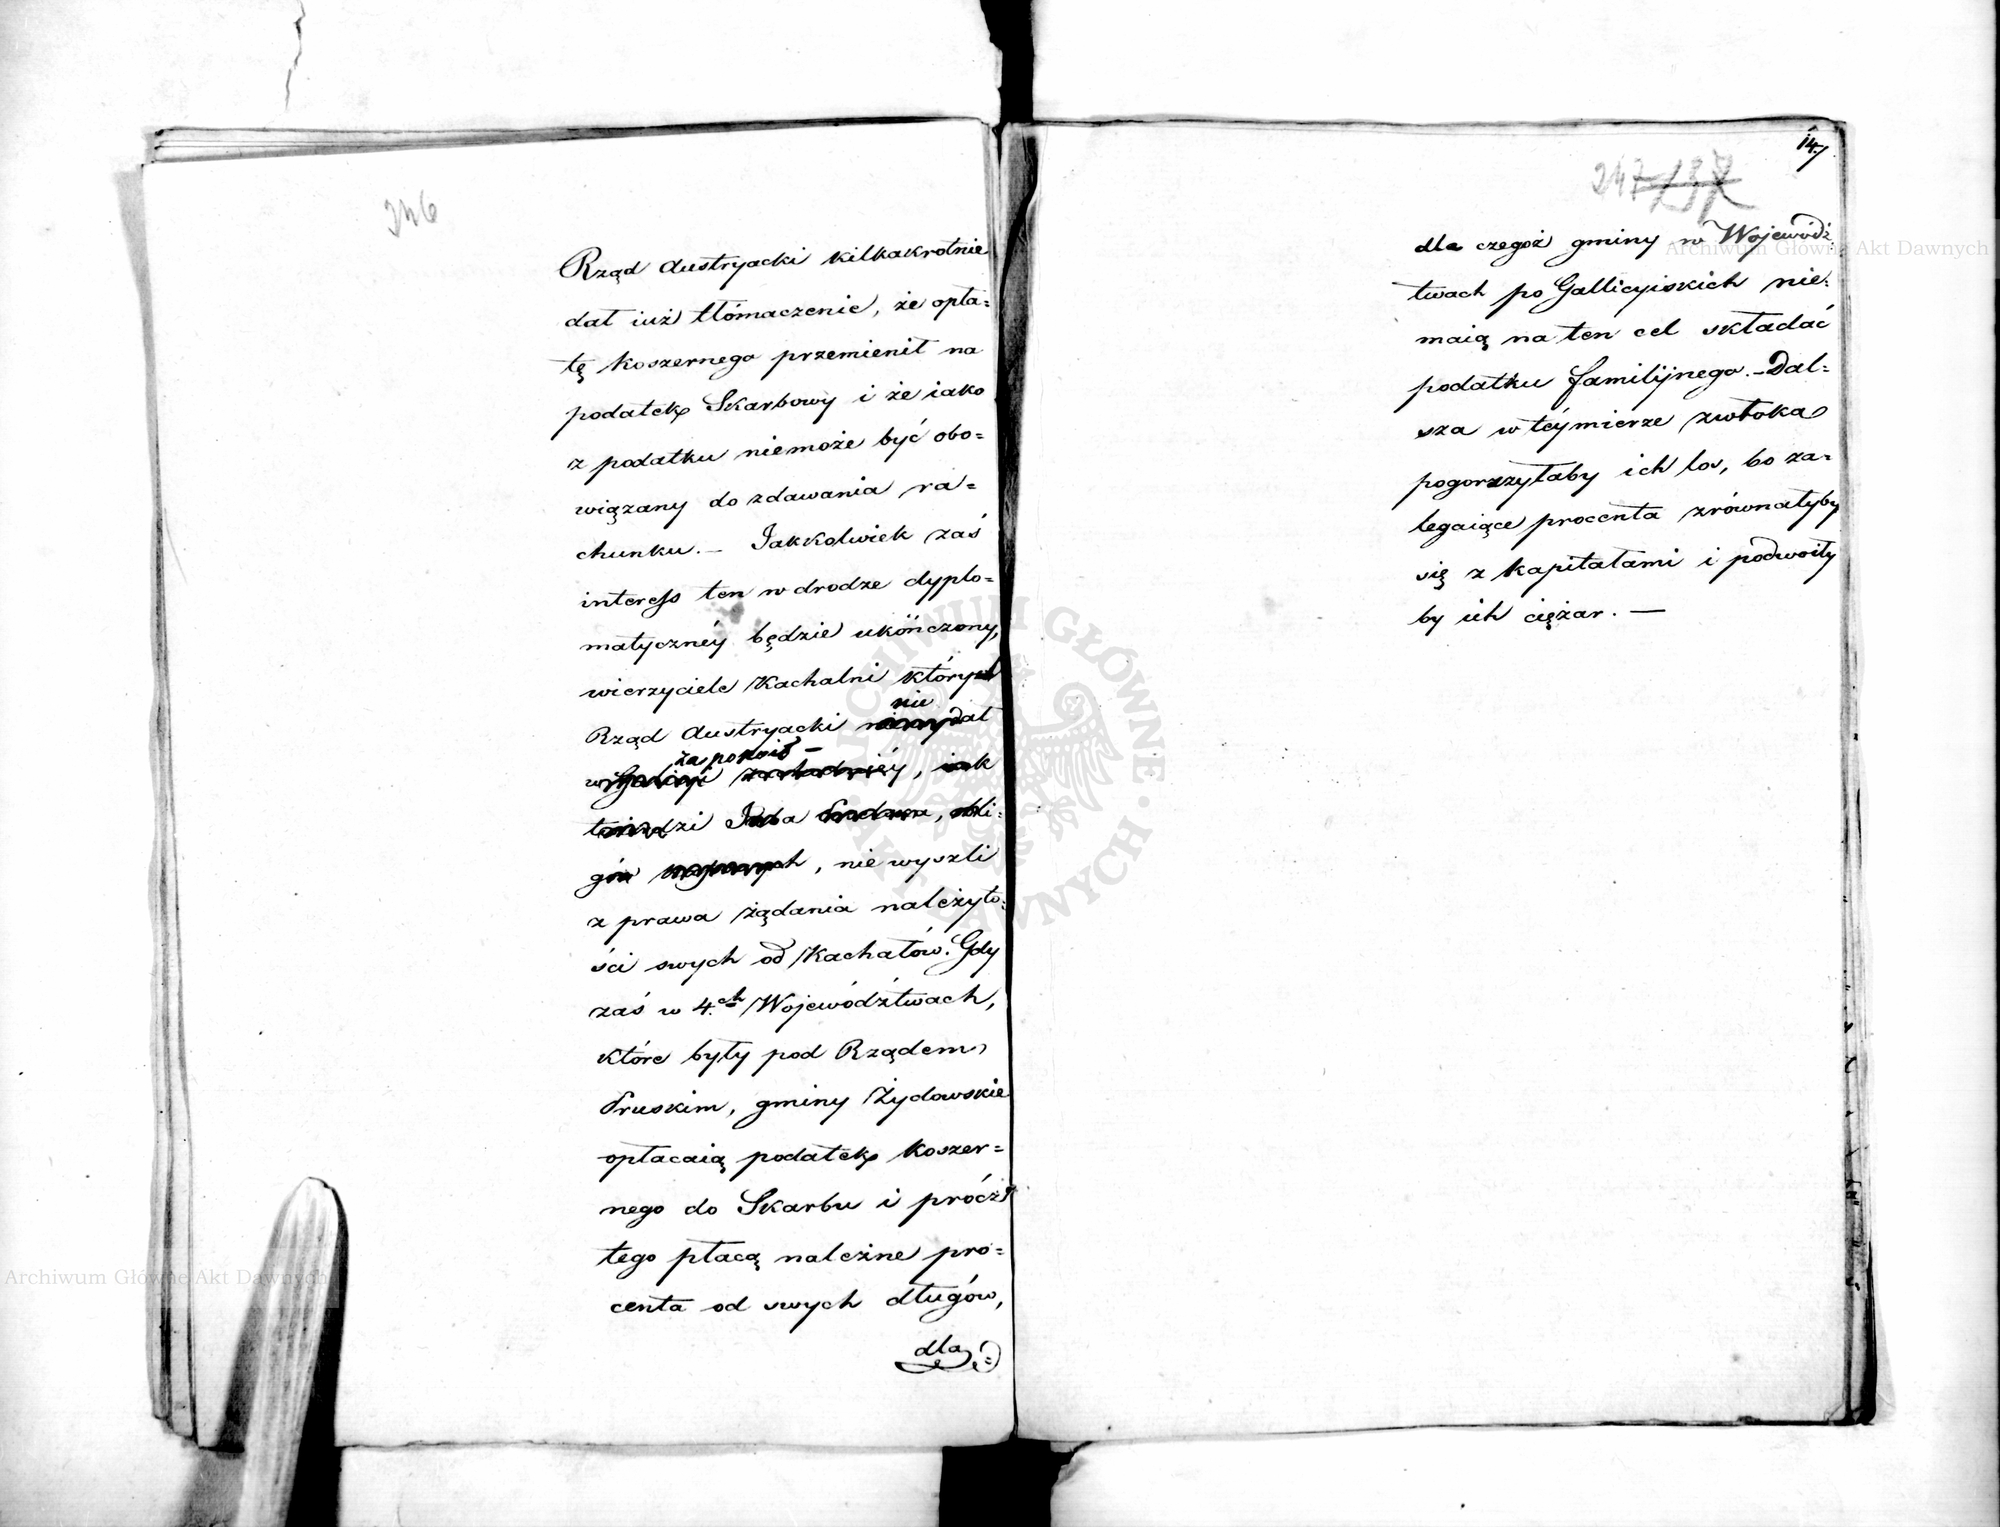 246
Rząd Austryacki kilkakrotnie
dał iuż tłómaczenie, że opła=
tę koszernego przemienił na
podatek Skarbowy i że iako
z podatku niemoże być obo=
wiązany do zdawania ra=
chunku. — Jakkolwiek zaś
interess ten w drodze dyplo=
matycznéy będzie ukończony,
wierzyciele Kachalni których
nie
Rząd Austryacki
zapokoił —
w Galicyi zachodniéy, iak
twierdzi Juda, obli=
gów, nie wyszli
z prawa żądania należyto=
ści swych od Kachałów. Gdy
zaś w 4.ch Województwach,
które były pod Rządem
Pruskim, gminy Żydowskie
opłacaią podatek koszer=
nego do Skarbu i prócz
tego płacą należne pro=
centa od swych długów,
dla
147
247 137
dla czegoż gminy w Wojewódz
twach po Gallicyiskich nie=
maią na ten cel składać
podatku familijnego. — Dal=
sza w téymierze zwłoka
pogorszyłaby ich los, bo za=
legaiące procenta zrównałyby
się z kapitałami i podwoiły
by ich ciężar. —
Archiwum Główne Akt Dawnych
Archiwum Główne Akt Dawnych
ARCHIWUM GŁÓWNE AKT DAWNYCH